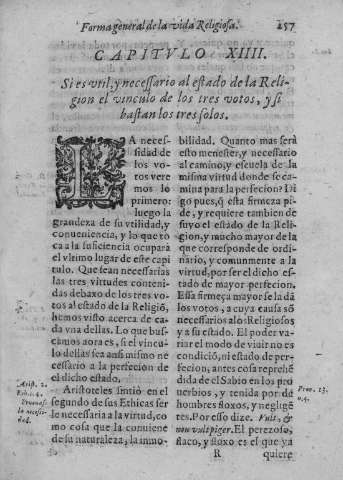 Forma general de la vida Religiosa. 257
CAPITVLO XIIII.
Si es vtil, y necessario al estado de la Reli-
gion el vinculo de los tres votos, y si
bastan los tres solos.
LA neces-
sidad de
los vo-
tos vere
mos lo
primero:
luego la
grandeza de su vtilidad, y
conueniencia, y lo que to
ca a la suficiencia ocuparà
el vltimo lugar de este capi
tulo. Que sean necessarias
las tres virtudes conteni
das debaxo de los tres vo
tos al estado de la Religiõ,
hemos visto acerca de ca
da vna dellas. Lo que bus-
camos aora es, si el vincu
lo dellas sea ansi mismo ne
cessario a la perfecion de
el dicho estado.
Aristoteles sintiò en el
segundo de sus Ethicas ser
le necessaria a la virtud, co
mo cosa que la conuiene
de su naturaleza, la inmo-
Arist. 2.
bilidad. Quanto mas serà
esto menester, y necessario
al camino, y escuela de la
misma virtud donde se ca
mina para la perfecion? Di
go pues, q̃ esta firmeza pi-
de, y requiere tambien de
suyo el estado de la Reli-
gion, y mucho mayor de la
que corresponde de ordi-
nario, y comunmente a la
virtud, por ser el dicho es-
tado de mayor perfecion.
Essa firmeça mayor se la dà
los votos, a cuya causa sõ
necessarios a los Religiosos
y a su estado. El poder va-
riar el modo de viuir no es
condiciõ, ni estado de per-
fecion, antes cosa reprehẽ
dida de el Sabio en los pro
uerbios, y tenida por de
hombres floxos, y negligẽ
tes. Por esso dize. Vult, &
non vult piger. El perezoso,
flaco, y floxo es el que ya
Prou. 13.
n.4.
R quiere